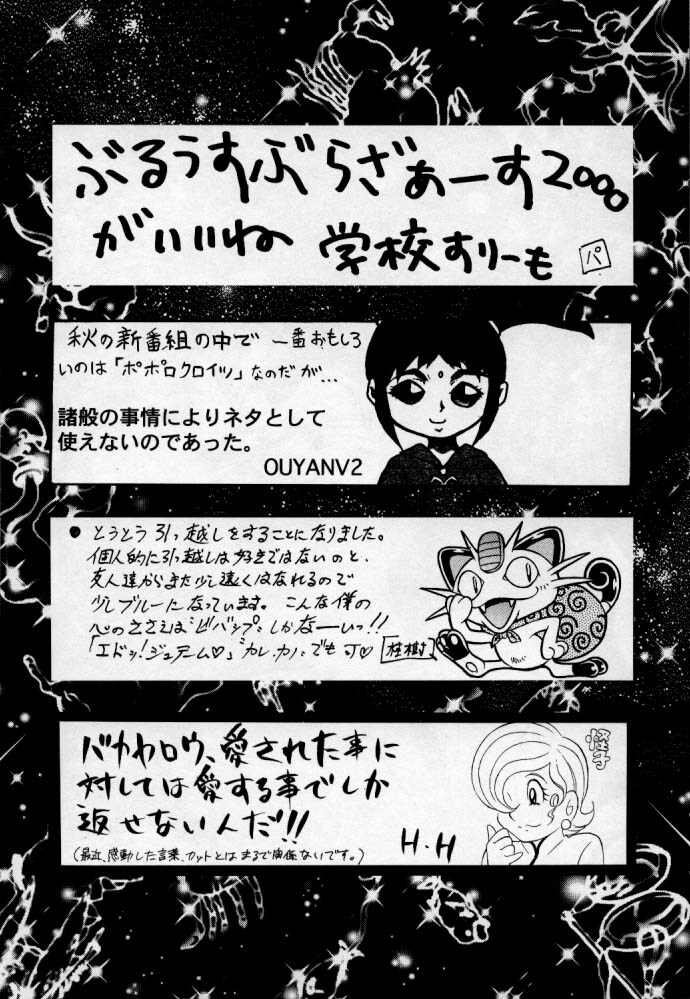 ぶるうすぶらざぁーす2000
がいいね 学校すりーも パ
秋の新番組の中で 一番おもしろ
いのは「ポポロクロイツ」なのだが…
諸般の事情によりネタとして
使えないのであった。
OUYANV2
● とうとう引っ越しをすることになりました。
個人的に引っ越しは好きではないのと、
友人達からまた少し遠くはなれるので
少しブルーになっています。こんな僕の
心のささえは"ビバップ"しかなーいっ!!
「エドッ!ジュテーム♡」"カレ.カノ"でも可♡ 桂樹
バカヤロウ、愛された事に
対しては愛する事でしか
返せないんだ!!
(最近、感動した言葉、カットとはまるで関係ないです。)
H.H
怪子